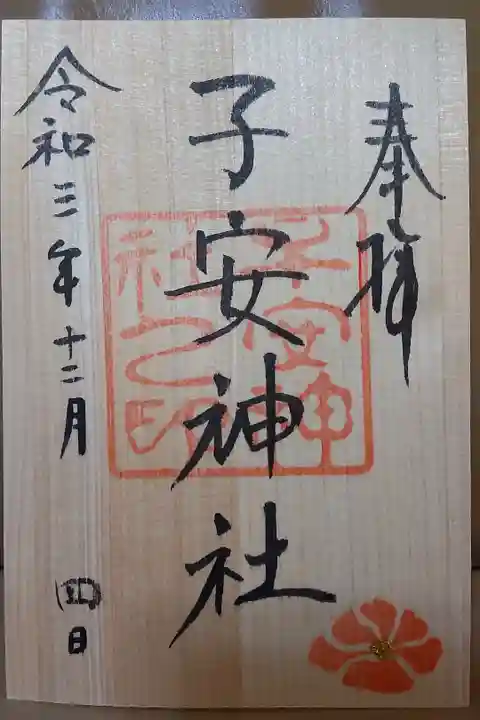 奉拝
子安神社
子安神
社之印
令和三年十二月四日